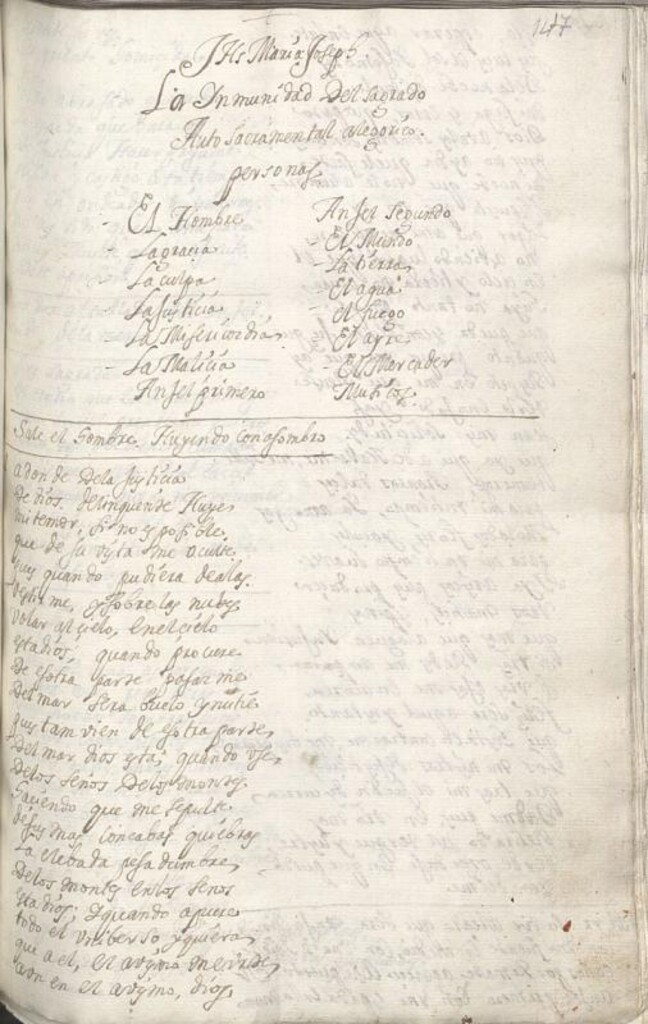 147
JHs Maria Joseph
La Inmunidad Del sagrado
Auto sacramental alegorico.
personas
- El Hombre
- La gracia
La culpa
- La justicia
- La Misericordia
- La Malicia
Anjel primero
Anjel segundo
- El Mundo
- La tierra
- El agua
- el fuego
El ayre
- El Mercader
Musicos
Sale el hombre Huyendo con asombro
adonde dela justicia
de dios. delinquente Huye
mi temor, si no es posible
que de su vista me oculte
pues quando pudiera de alas
vestirme, y sobre las nubes
volar al cielo, en el cielo
esta dios; quando procure
de esotra parte pasarme
del mar sera buelo ynutil
pues tam vien de esotra parte
del mar dios esta; quando use
delos senos delos montes
haciendo que me sepulte
de sus mas concabas quiebras
la elebada pesadumbre,
delos montes en los senos
esta dios; y quando apure
todo el vniberso y quiera
que a el, el avysmo
aun en el avysmo, dios